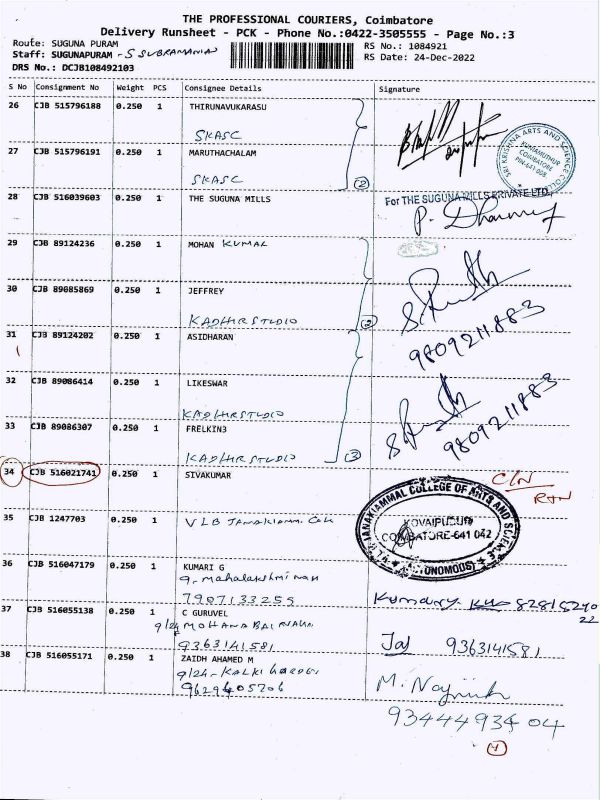 THE PROFESSIONAL COURIERS, Coimbatore
Delivery Runsheet - PCK - Phone No.:0422-3505555 - Page No.:3
Route: SUGUNA PURAM
Staff: SUGUNAPURAM - S SUBRAMANIAN
DRS No.: DCJB108492103
RS No.: 1084921
RS Date: 24-Dec-2022
S No Consignment No Weight PCS Consignee Details Signature
26 CJB 515796188 0.250 1 THIRUNAVUKARASU
SKASC
SRI KRISHNA ARTS AND SCIENCE COLLEGE
KUNIAMUTHUR
COIMBATORE
PIN-641 008
27 CJB 515796191 0.250 1 MARUTHACHALAM
SKASC
2
28 CJB 516039603 0.250 1 THE SUGUNA MILLS
For THE SUGUNA MILLS PRIVATE LTD.
29 CJB 89124236 0.250 1 MOHAN KUMAR
30 CJB 89085869 0.250 1 JEFFREY
KADHIR STUDIO
2
9809211883
31 CJB 89124202 0.250 1 ASIDHARAN
32 CJB 89086414 0.250 1 LIKESWAR
KADHIR STUDIO
33 CJB 89086307 0.250 1 FRELKIN3
KADHIR STUDIO
3
9809211883
34 CJB 516021741 0.250 1 SIVAKUMAR
C/N
RTN
35 CJB 1247703 0.250 1 VLB JANAKIAMM. COll
V.L.B. JANAKIAMMAL COLLEGE OF ARTS AND SCIENCE
KOVAIPUDUR
COIMBATORE-641 042
(AUTONOMOUS)
36 CJB 516047179 0.250 1 KUMARI G
9-mahalakshmi nagar
7907133259
37 CJB 516055138 0.250 1 C GURUVEL
9/24 MOHANA
9363141581
9363141581
38 CJB 516055171 0.250 1 ZAIDH AHAMED M
9/24-KALKI GARDEN
9629405206
9344493404
4